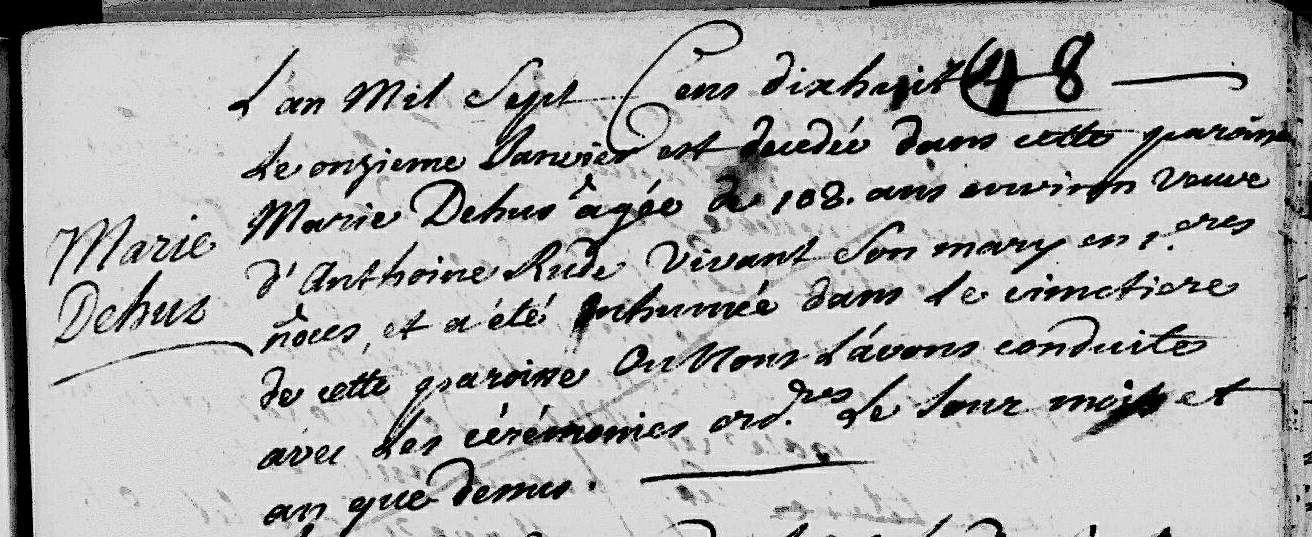 L'an Mil Sept Cens dix huit 48
Le onzieme Janvier est decedée dans cette paroisse
Marie Dehus agée de 108. ans environ veuve
Marie
d'Anthoine Rude vivant son mary en p.eres
Dehus
nôces, et a été inhumée dans le cimetiere
de cette paroisse ou Nous l'avons conduite
avec les cérémonies ord.res Le Jour mois et
an que dessus.